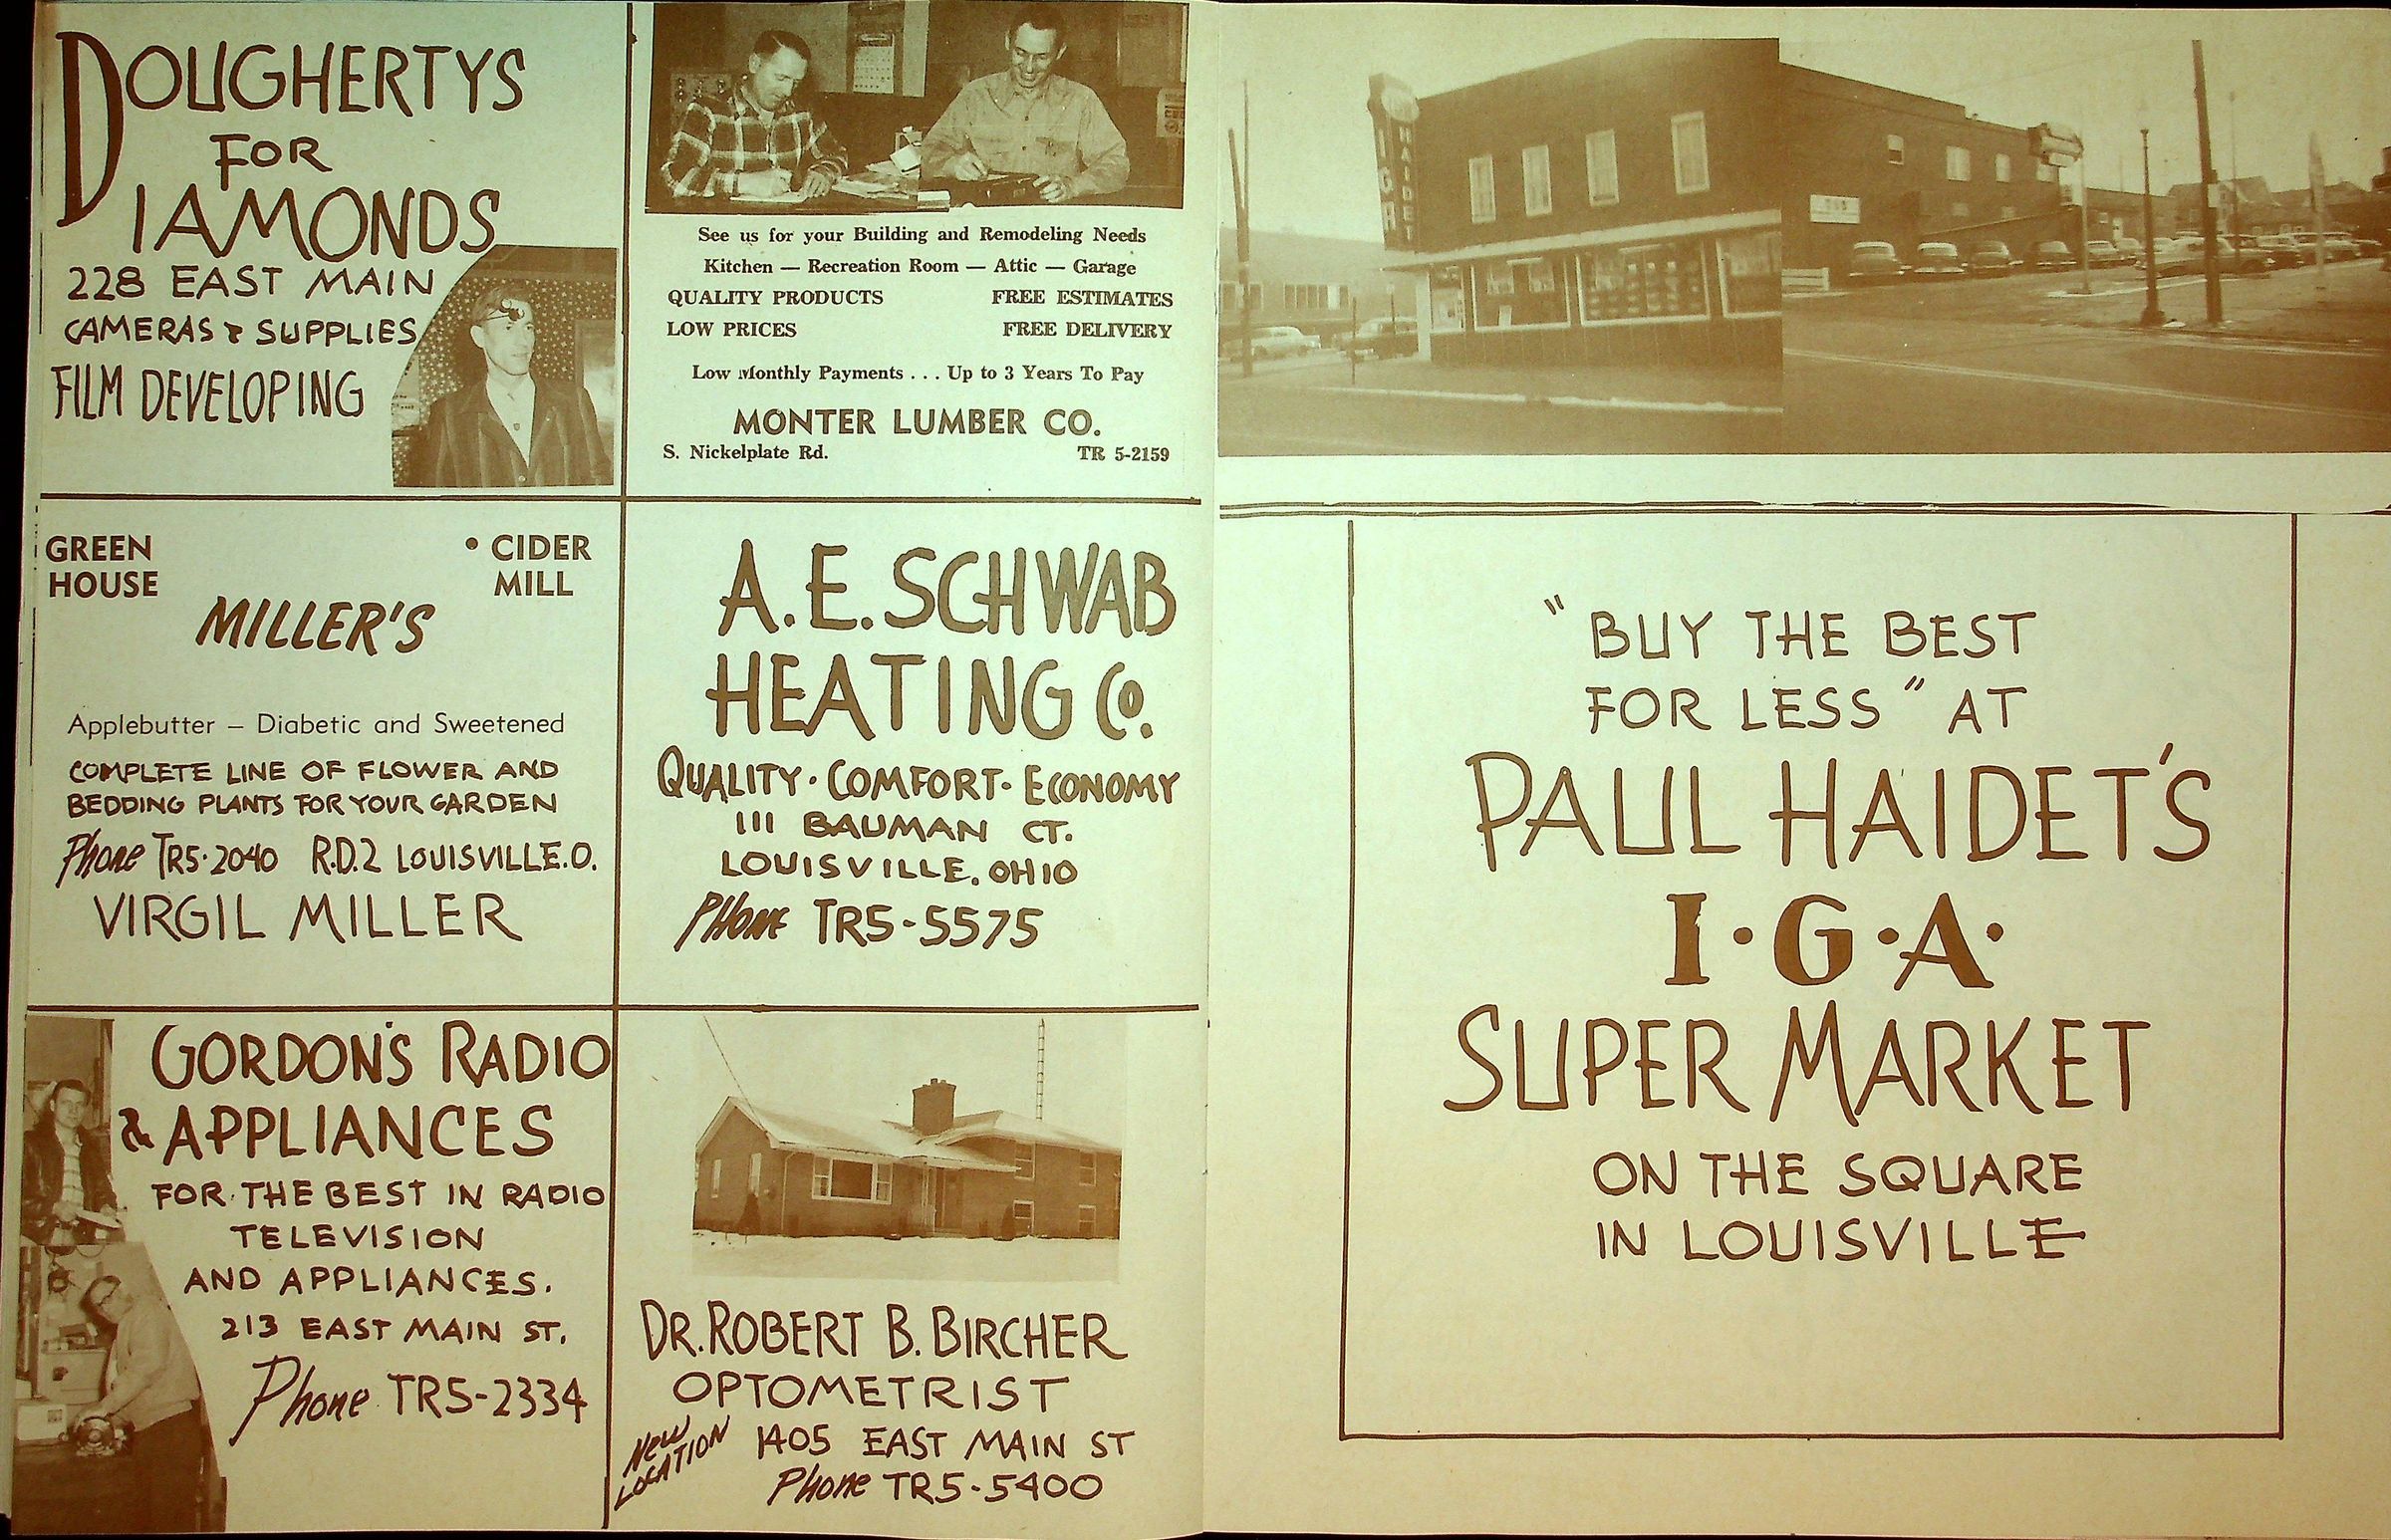 DOUGHERTYS
FOR
DIAMONDS
228 EAST MAIN
CAMERAS & SUPPLIES
FILM DEVELOPING
See us for your Building and Remodeling Needs
Kitchen — Recreation Room — Attic — Garage
QUALITY PRODUCTS FREE ESTIMATES
LOW PRICES FREE DELIVERY
Low Monthly Payments . . . Up to 3 Years To Pay
MONTER LUMBER CO.
S. Nickelplate Rd. TR 5-2159
GREEN HOUSE
• CIDER MILL
MILLER'S
Applebutter – Diabetic and Sweetened
COMPLETE LINE OF FLOWER AND
BEDDING PLANTS FOR YOUR GARDEN
Phone TR5-2040 R.D.2 LOUISVILLE.O.
VIRGIL MILLER
A.E. SCHWAB
HEATING Co.
QUALITY · COMFORT · ECONOMY
111 BAUMAN CT.
LOUISVILLE, OHIO
PHONE TR5-5575
GORDON'S RADIO
& APPLIANCES
FOR THE BEST IN RADIO
TELEVISION
AND APPLIANCES.
213 EAST MAIN ST.
Phone TR5-2334
DR. ROBERT B. BIRCHER
OPTOMETRIST
NEW LOCATION
1405 EAST MAIN ST
Phone TR5-5400
IGA
HAIDET
"BUY THE BEST
FOR LESS" AT
PAUL HAIDET'S
I·G·A·
SUPER MARKET
ON THE SQUARE
IN LOUISVILLE